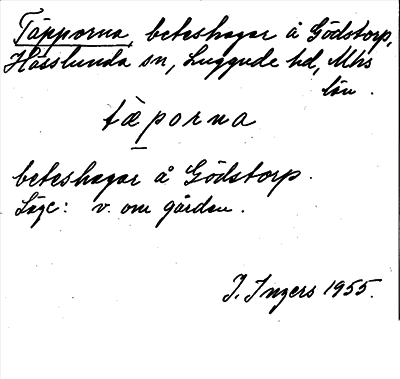 Täpporna, beteshagar å Gödstorp,
Hässlunda sn, Luggude hd, Mhs
län.
tæ̀porna
beteshagar å Gödstorp.
Läge: v. om gården.
J. Ingers 1955.